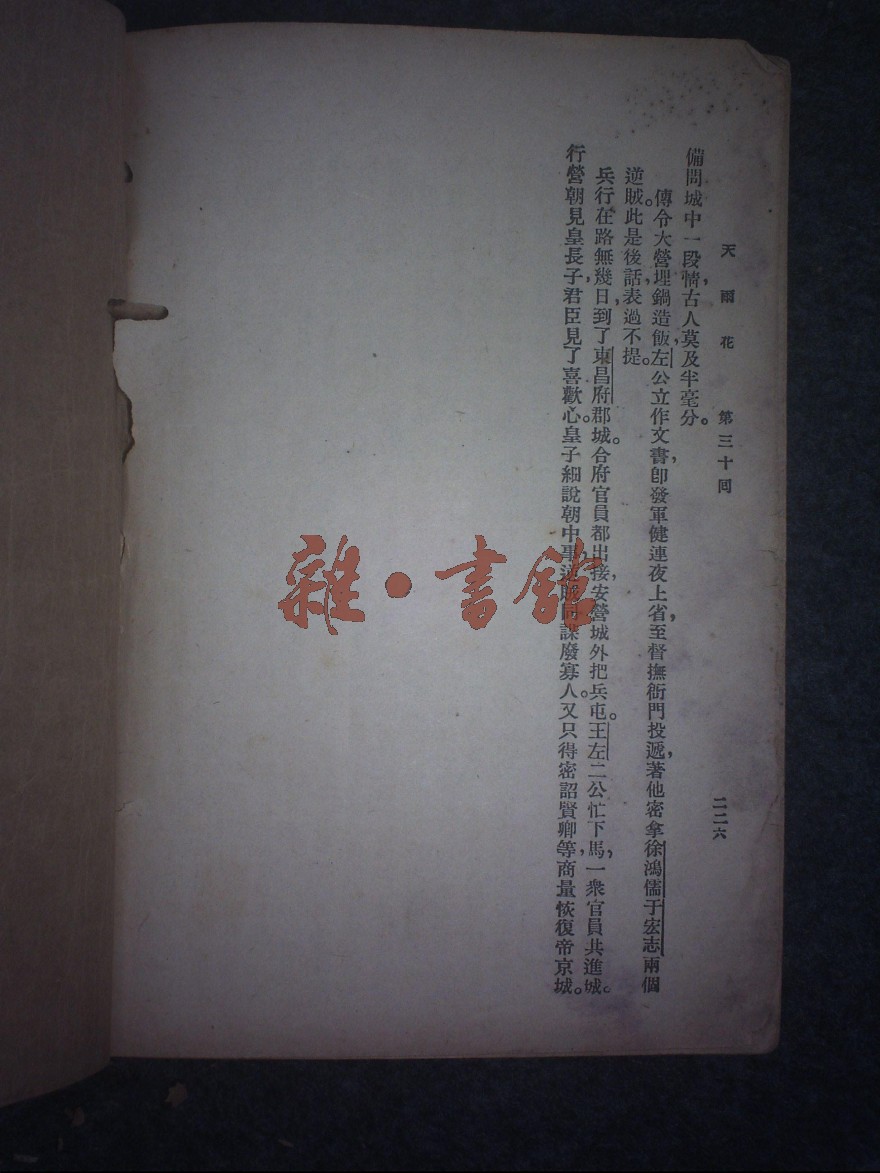 天雨花 第三十回 二二六
備問城中一段情，古人莫及半毫分。
傳令大營埋鍋造飯，左公立作文書，即發軍健連夜上省，至督撫衙門投遞，著他密拿徐鴻儒于宏志兩個
逆賊。此是後話，表過不提。
兵行在路無幾日，到了東昌府郡城。合府官員都出接，安營城外把兵屯。王左二公忙下馬，一衆官員共進城。
行營朝見皇長子，君臣見了喜歡心。皇子細說朝中事，逆賊同謀廢寡人。又只得密詔賢卿等，商量恢復帝京城。
雜·書館